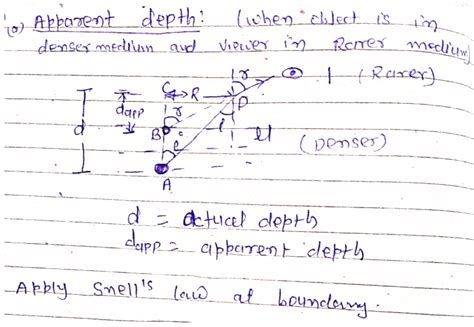 (o) Apparent depth: (when object is in
denser medium and viewer in Rarer medium)
r
1 (Rarer)
C R
dapp r P
d B i
i μ (Denser)
A
d = actual depth
dapp = apparent depth
Apply Snell's law at boundary.